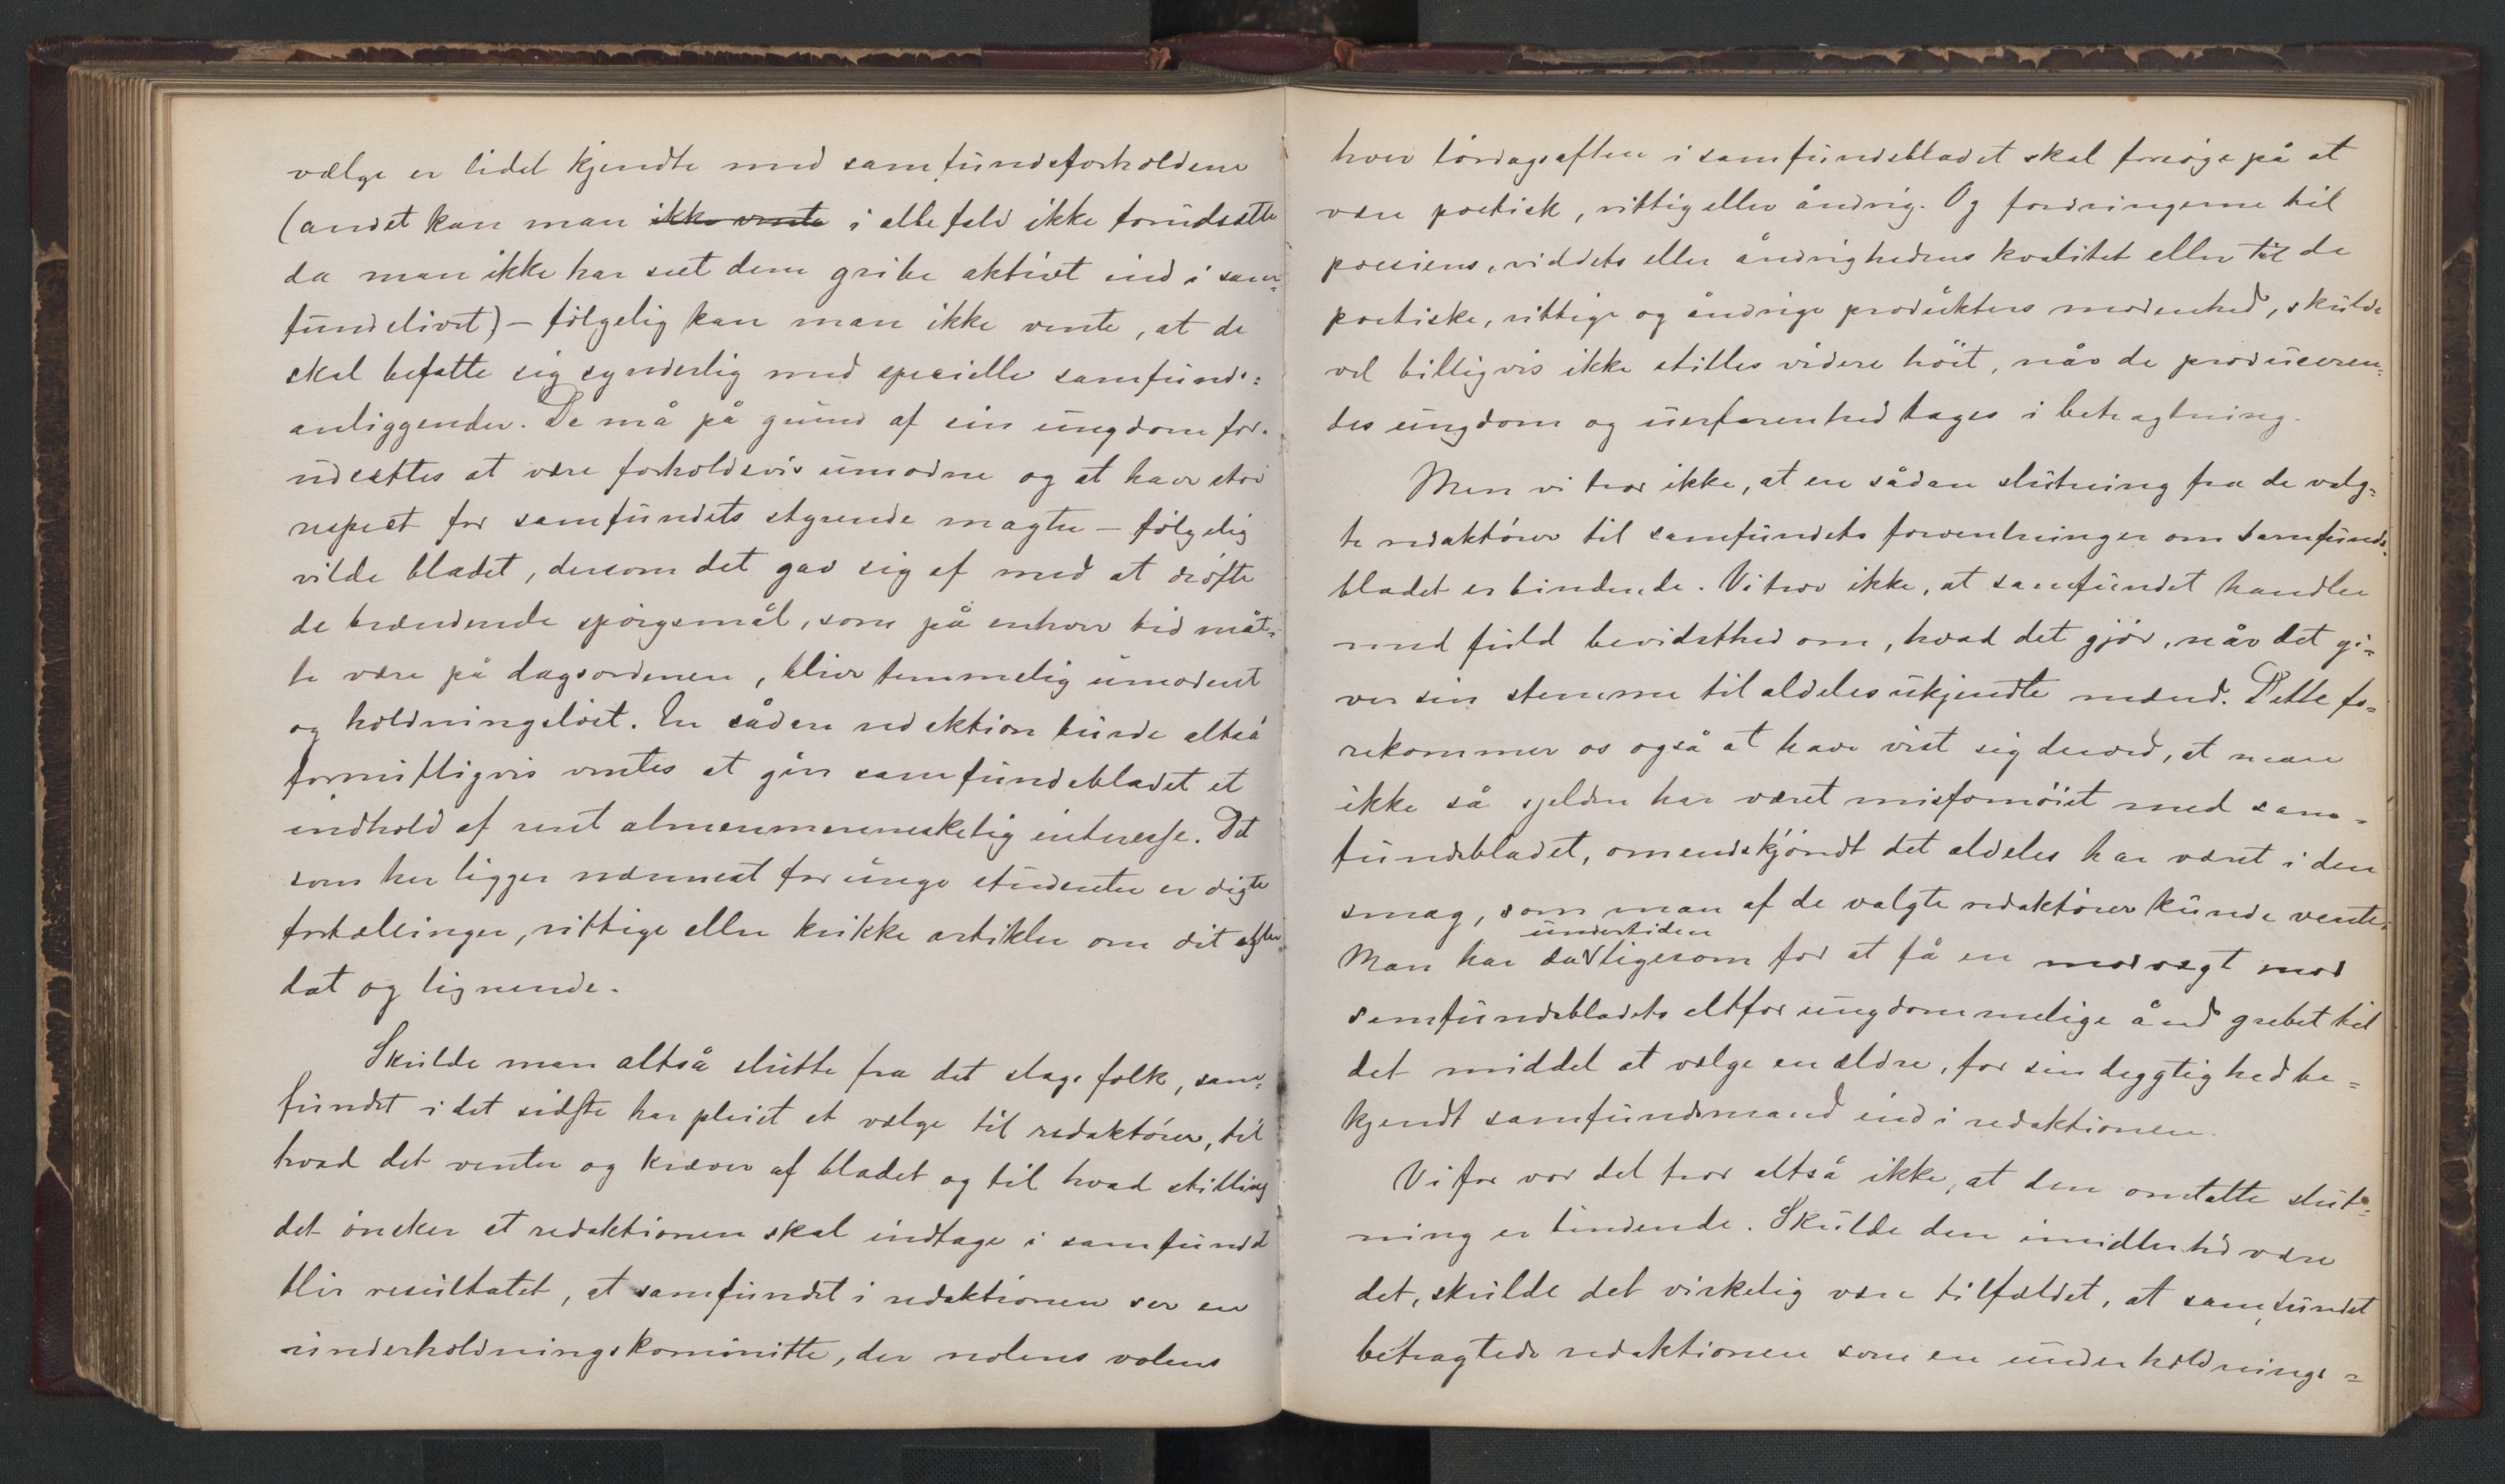 vælge er lidet kjendte med samfundsforholdene
(andet kan man ikke vente i alle fald ikke forudsætte
da man ikke har seet dem gribe aktivt ind i sam-
fundslivet) – følgelig kan man ikke vente, at de
skal befatte sig synderlig med specielle samfunds-
anliggender. De må på grund af sin ungdom for-
udsættes at være forholdsvis umodne og at have stor
respect for samfundets styrende magter – følgelig
vilde bladet, dersom det gav sig af med at drøfte
de brændende spørgsmål, som på enhver tid måt-
te være på dagsordenen, blive temmelig umodent
og holdningsløst. En sådan redaktion burde altså
fornuftigvis ventes at give samfundsbladet et
indhold af rent almenmenneskelig interesse. Det
som her ligger nærmest for unge studenter er digte
fortællinger, vittige eller kvikke artikler om dit eller
dat og lignende.
Skulde man altså slutte fra det slags folk, sam-
fundet i det sidste har pleiet at vælge til redaktører, til
hvad det venter og kræver af bladet og til hvad stilling
det ønsker at redaktionen skal indtage i samfundet
blir resultatet, at samfundet i redaktionen ser en
underholdningskommitte, der nolens volens
hver lørdagsaften i samfundsbladet skal forsøge på at
være poetisk, vittig eller åndrig. Og fordringerne til
poesiens, viddets eller åndrighedens kvalitet eller til de
poetiske, vittige og åndrige produkters modenhed, skulde
vel billigvis ikke stilles videre høit, når de produceren-
des ungdom og uerfarenhed tages i betragtning.
Men vi tror ikke, at en sådan slutning fra de valg-
te redaktører til samfundets forventninger om samfunds-
bladet er bindende. Vi tror ikke, at samfundet handler
med fuld bevidsthed om, hvad det gjør, når det gi-
ver sin stemme til aldeles ukjendte mænd. Dette fo-
rekommer os også at have vist sig derved, at man
ikke så sjelden har været misfornøiet med sam-
fundsbladet, omendskjøndt det aldeles har været i den
smag, som man af de valgte redaktører kunde vente.
undertiden
Man har da ligesom for at få en modvægt mod
samfundsbladets altfor ungdommelige ånd grebet til
det middel at vælge en ældre, for sin dygtighed be-
kjendt samfundsmand ind i redaktionen.
Vi for vor del tror altså ikke, at den omtalte slut-
ning er bindende. Skulde den imidlertid være
det, skulde det virkelig være tilfældet, at samfundet
betragtede redaktionen som en underholdnings-